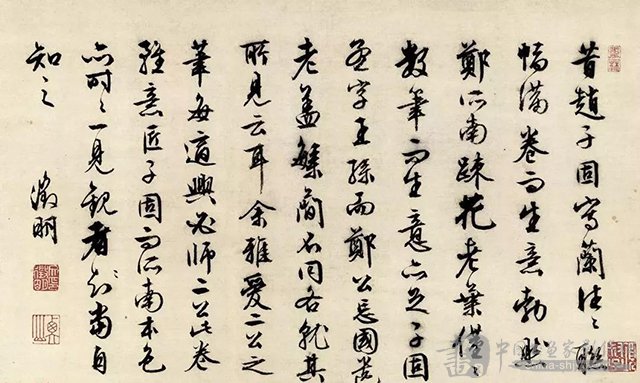 昔趙子固寫蘭往〻聯
幅滿卷而生意勃然
鄭所南疎花老葉僅〻
數筆而生意亦足子固
王孫而鄭公忘國
老蓋繁簡不同各就其
所見云耳余雅愛二公之
筆每適興必師二公此卷
雖意匠子固而所南本色
亦時〻一見觀者當自
知之
徵明